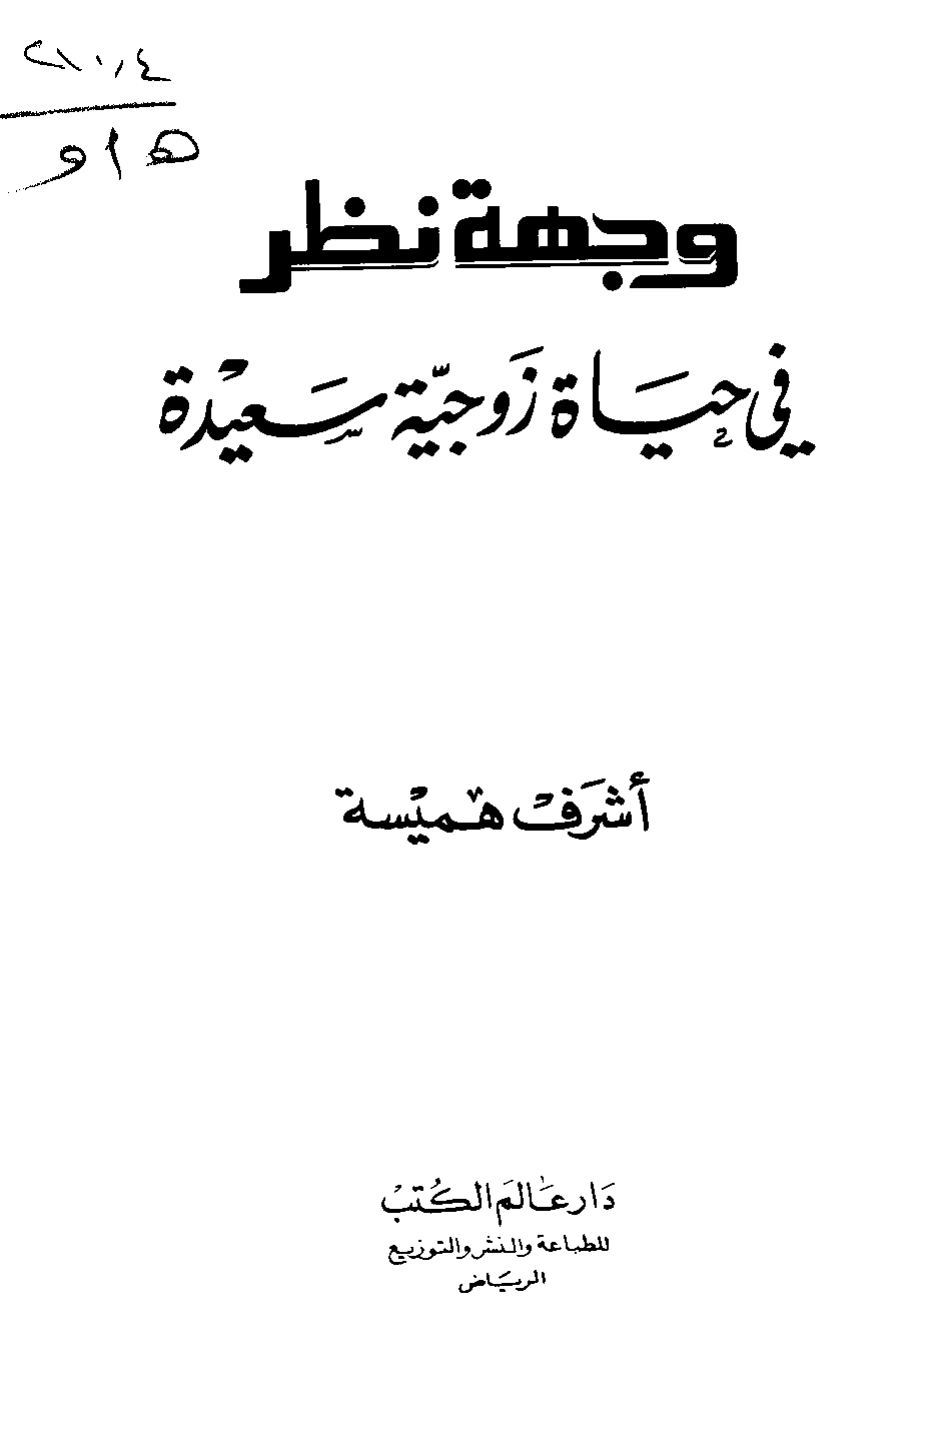 ٢١٠,٤
هـ ا و
وجهة نظر
في حياة زوجيّة سعيدة
أشرف هميسة
دار عالم الكتب
للطباعة والنشر والتوزيع
الرياض